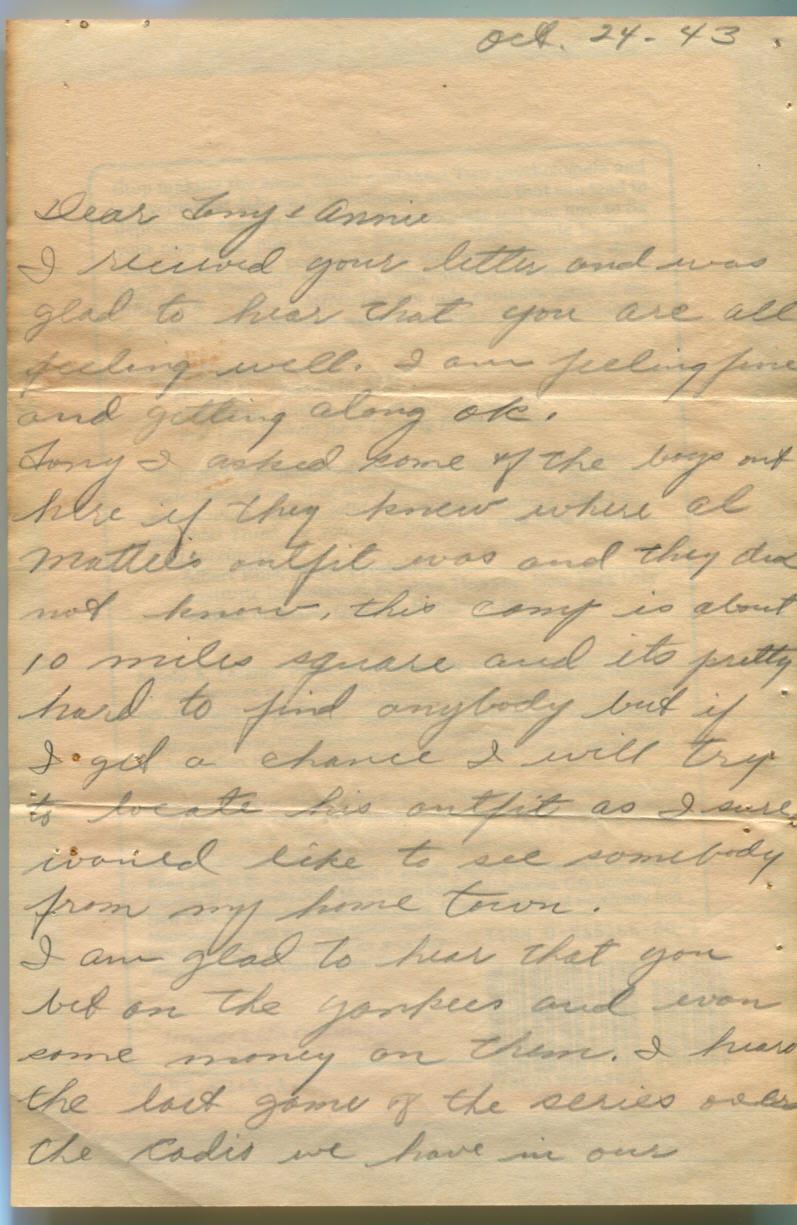 Oct. 24 - 43
Dear Tony & Annie
I recieved your letter and was
glad to hear that you are all
feeling well. I am feeling fine
and getting along ok.
Tony I asked some of the boys out
here if they knew where Al
outfit was and they did
not know, this camp is about
10 miles square and its pretty
hard to find anybody but if
I get a chance I will try
to locate his outfit as I sure
would like to see somebody
from my home town.
I am glad to hear that you
bet on the Yankees and won
some money on them. I heard
the last game of the series over
the radio we have in our